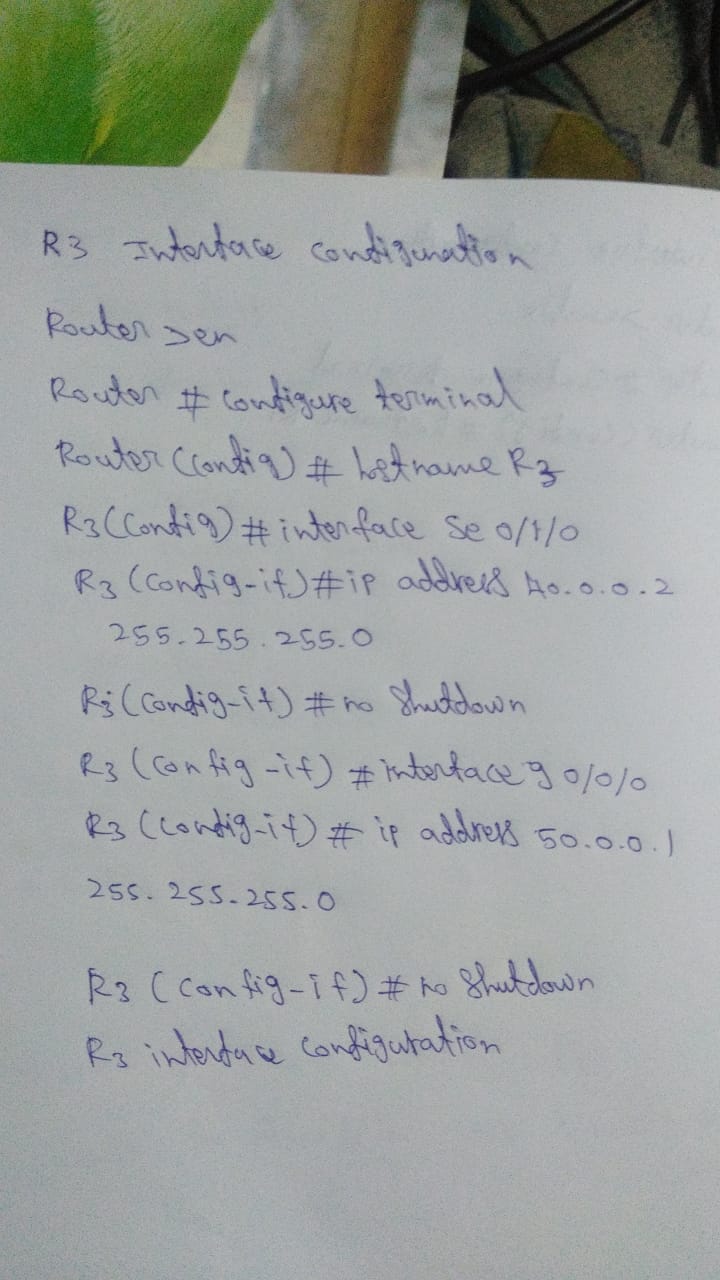 R3 Interface configuration
Router >en
Router # configure terminal
Router (config) # hostname R3
R3 (config) # interface Se 0/1/0
R3 (config-if) # ip address 40.0.0.2
255.255.255.0
R3 (config-if) # no Shutdown
R3 (config-if) # interface g 0/0/0
R3 (config-if) # ip address 50.0.0.1
255.255.255.0
R3 (config-if) # no Shutdown
R3 interface configuration